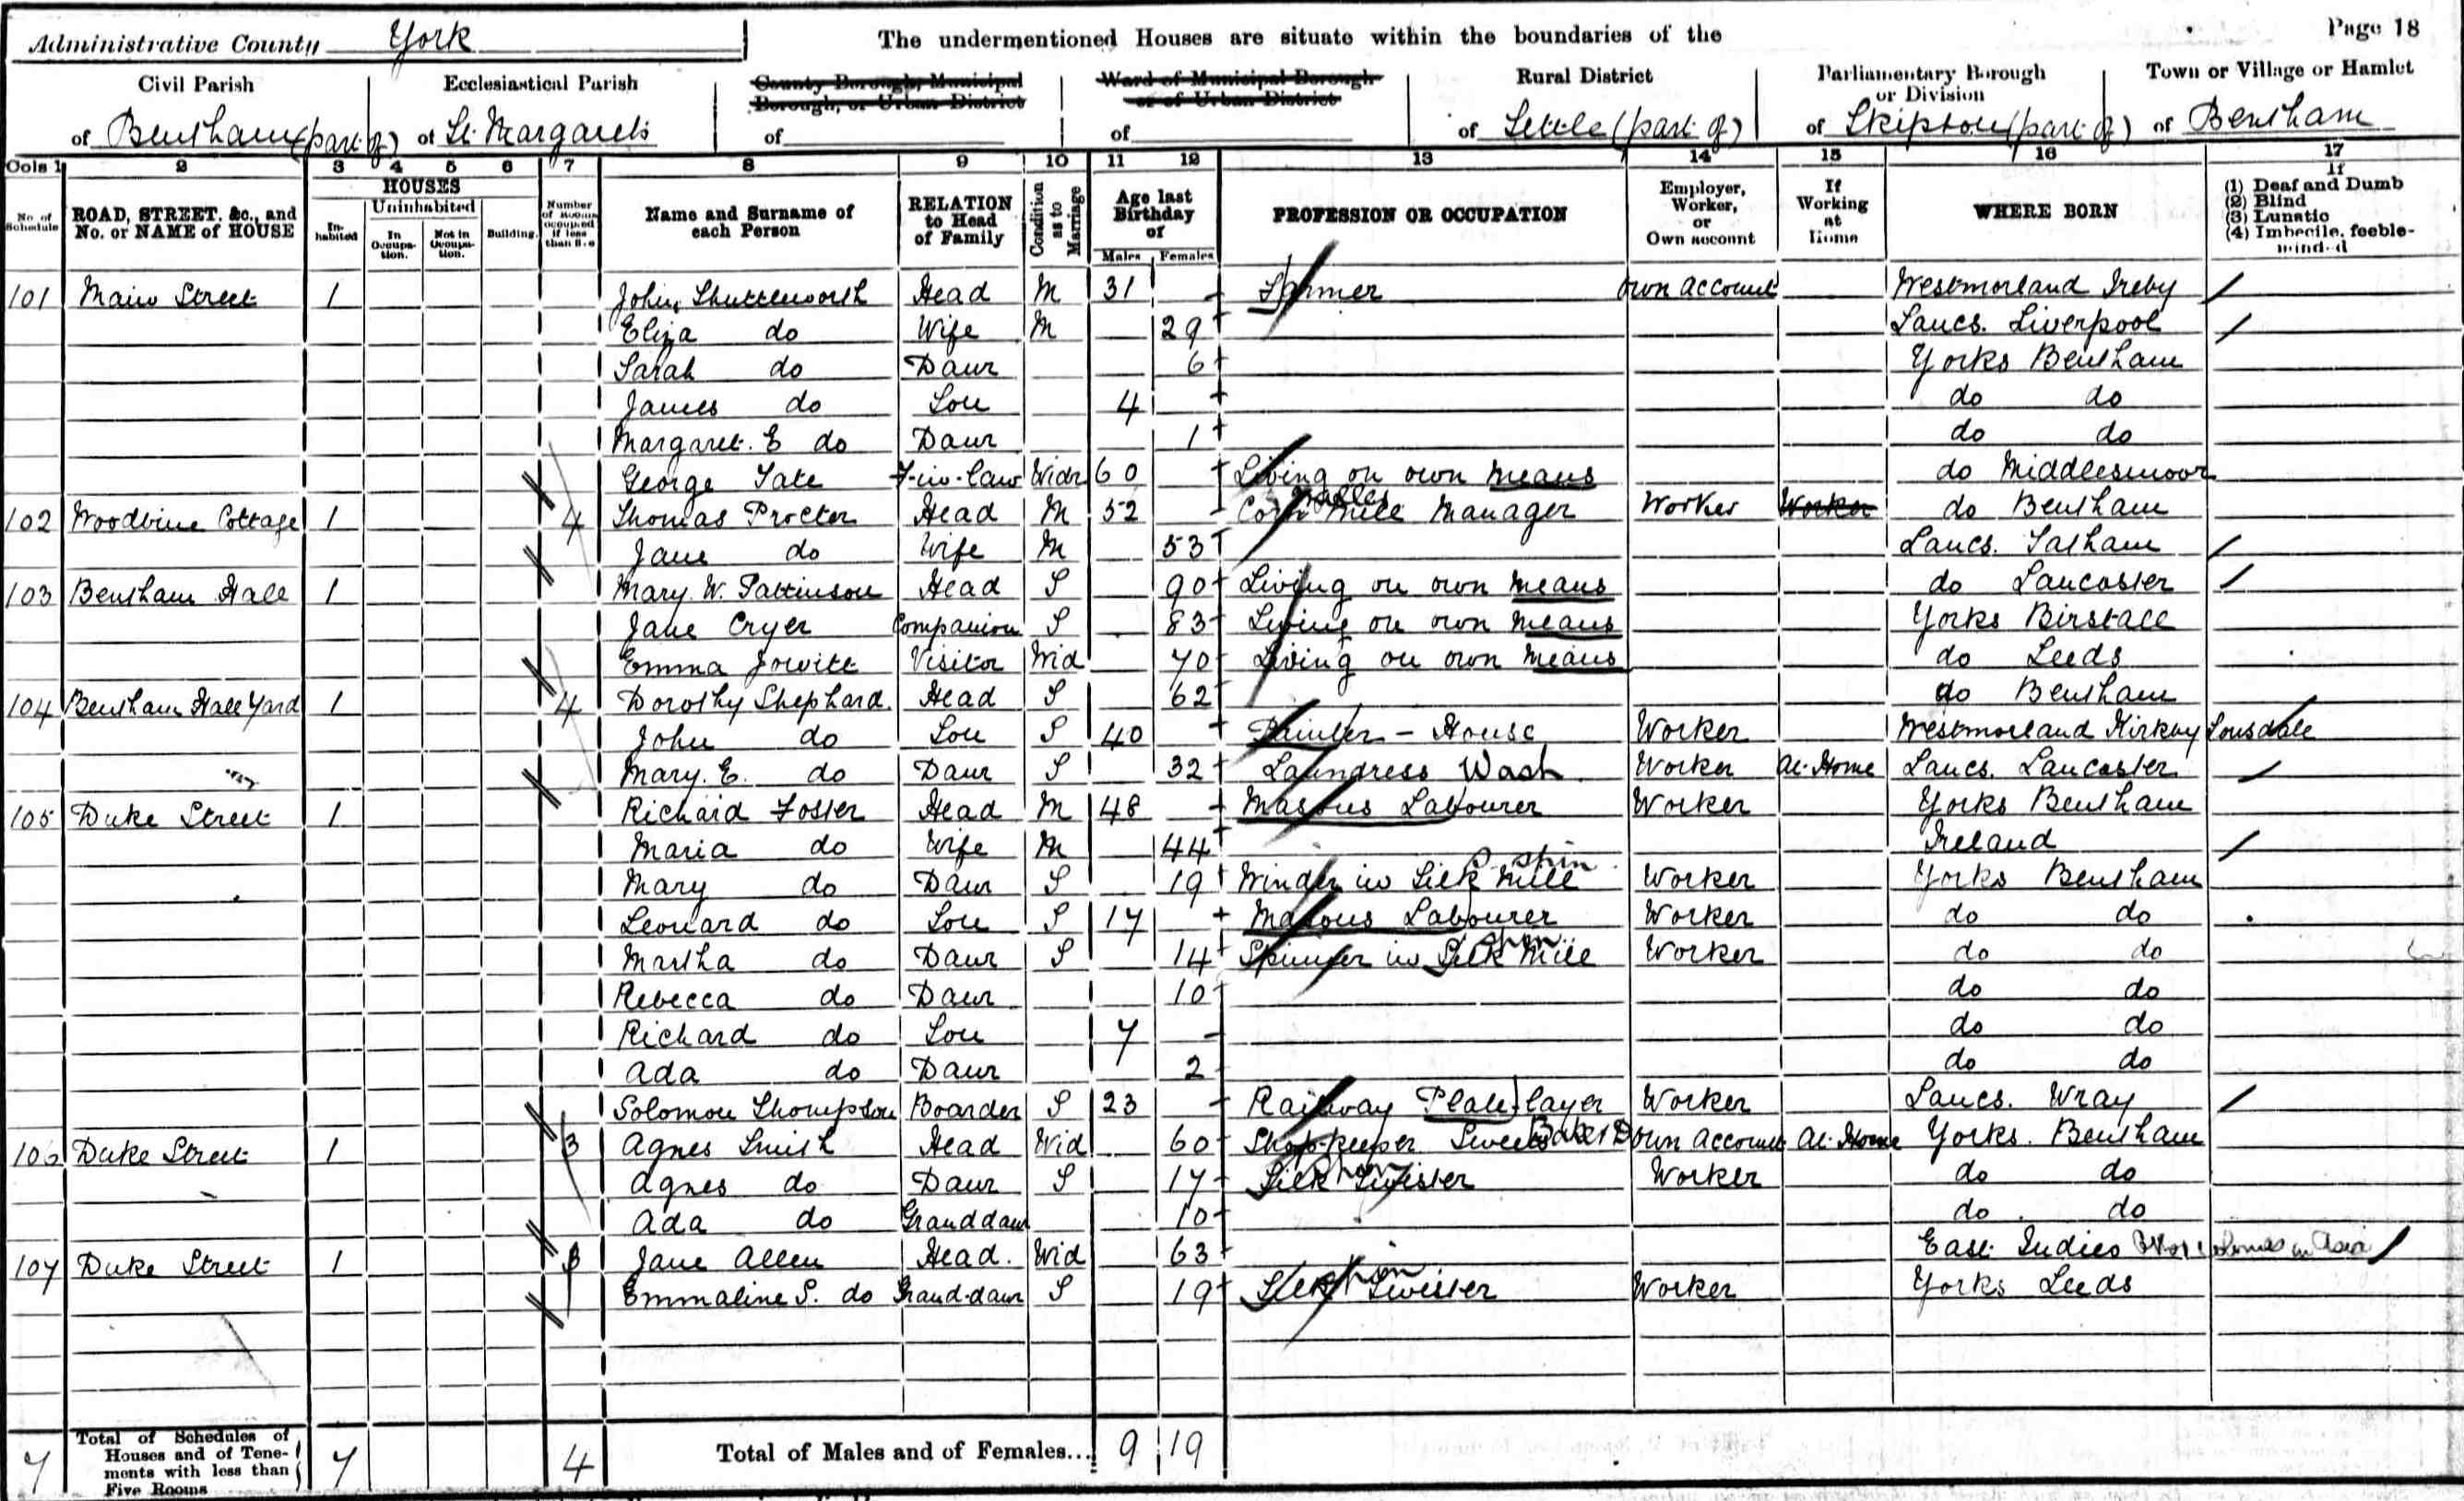 Administrative County York
The undermentioned Houses are situate within the boundaries of the
Page 18
Civil Parish
of Bentham (part of)
Ecclesiastical Parish
of St. Margaret's
County Borough, Municipal Borough, or Urban District
of
Ward of Municipal Borough or of Urban District
of
Rural District
of Settle (part of)
Parliamentary Borough or Division
of Skipton (part of)
Town or Village or Hamlet
of Bentham
Cols 1 2 3 4 5 6 7 8 9 10 11 12 13 14 15 16 17
No. of Schedule
ROAD, STREET, &c., and No. or NAME of HOUSE
HOUSES
Inhabited
Uninhabited
In Occupation.
Not in Occupation.
Building.
Number of Rooms occupied if less than five
Name and Surname of each Person
RELATION to Head of Family
Condition as to Marriage
Age last Birthday of
Males Females
PROFESSION OR OCCUPATION
Employer, Worker, or Own account
If Working at Home
WHERE BORN
If
(1) Deaf and Dumb
(2) Blind
(3) Lunatic
(4) Imbecile, feeble-minded
101 Main Street 1 John Shuttleworth Head M 31 Farmer Own account Westmorland Ireby
Eliza do Wife M 29 Lancs. Liverpool
Sarah do Daur 6 Yorks Bentham
James do Son 4 do do
Margaret. E do Daur 1 do do
George Tate F-in-law Widr 60 Living on own means do Middlesmoor
102 Woodbine Cottage 1 4 Thomas Procter Head M 52 Corn Mill Manager Worker Worker do Bentham
Jane do Wife M 53 Lancs. Tatham
103 Bentham Hall 1 Mary. W. Pattinson Head S 90 Living on own means do Lancaster
Jane Cryer Companion S 83 Living on own means Yorks Birstall
Emma Jowitt Visitor Wid 70 Living on own means do Leeds
104 Bentham Hall Yard 1 4 Dorothy Shephard. Head S 62 do Bentham
John do Son S 40 Painter - House Worker Westmorland Kirkby Lonsdale
Mary. E. do Daur S 32 Laundress Wash Worker At Home Lancs. Lancaster
105 Duke Street 1 Richard Foster Head M 48 Masons Labourer Worker Yorks Bentham
Maria do Wife M 44 Ireland
Mary do Daur S 19 Winder in Silk Mill Spin Worker Yorks Bentham
Leonard do Son S 17 Masons Labourer Worker do do
Martha do Daur S 14 Spinner in Silk Mill Worker do do
Rebecca do Daur 10 do do
Richard do Son 7 do do
Ada do Daur 2 do do
Solomon Thompson Boarder S 23 Railway Plate-layer Worker Lancs. Wray
106 Duke Street 1 3 Agnes Smith Head Wid 60 Shop-keeper Sweets Own account At Home Yorks. Bentham
Agnes do Daur S 17 Silk Twister Worker do do
Ada do Granddaur 10 do do
107 Duke Street 1 3 Jane Allen Head. Wid 63 East Indies
Emmaline S. do Grand-daur S 19 Silk Twister Worker Yorks Leeds
7 Total of Schedules of Houses and of Tenements with less than Five Rooms 7 4 Total of Males and of Females... 9 19